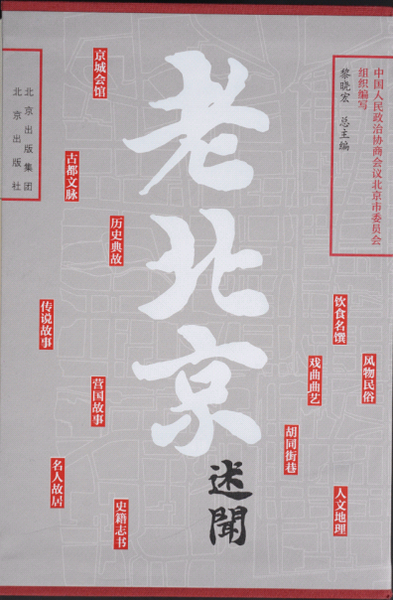 中国人民政治协商会议北京市委员会
组织编写
黎晓宏 总主编
老北京
述聞
京城会馆
古都文脉
历史典故
传说故事
营国故事
名人故居
史籍志书
饮食名馔
风物民俗
戏曲曲艺
胡同街巷
人文地理
北京出版集团
北京出版社